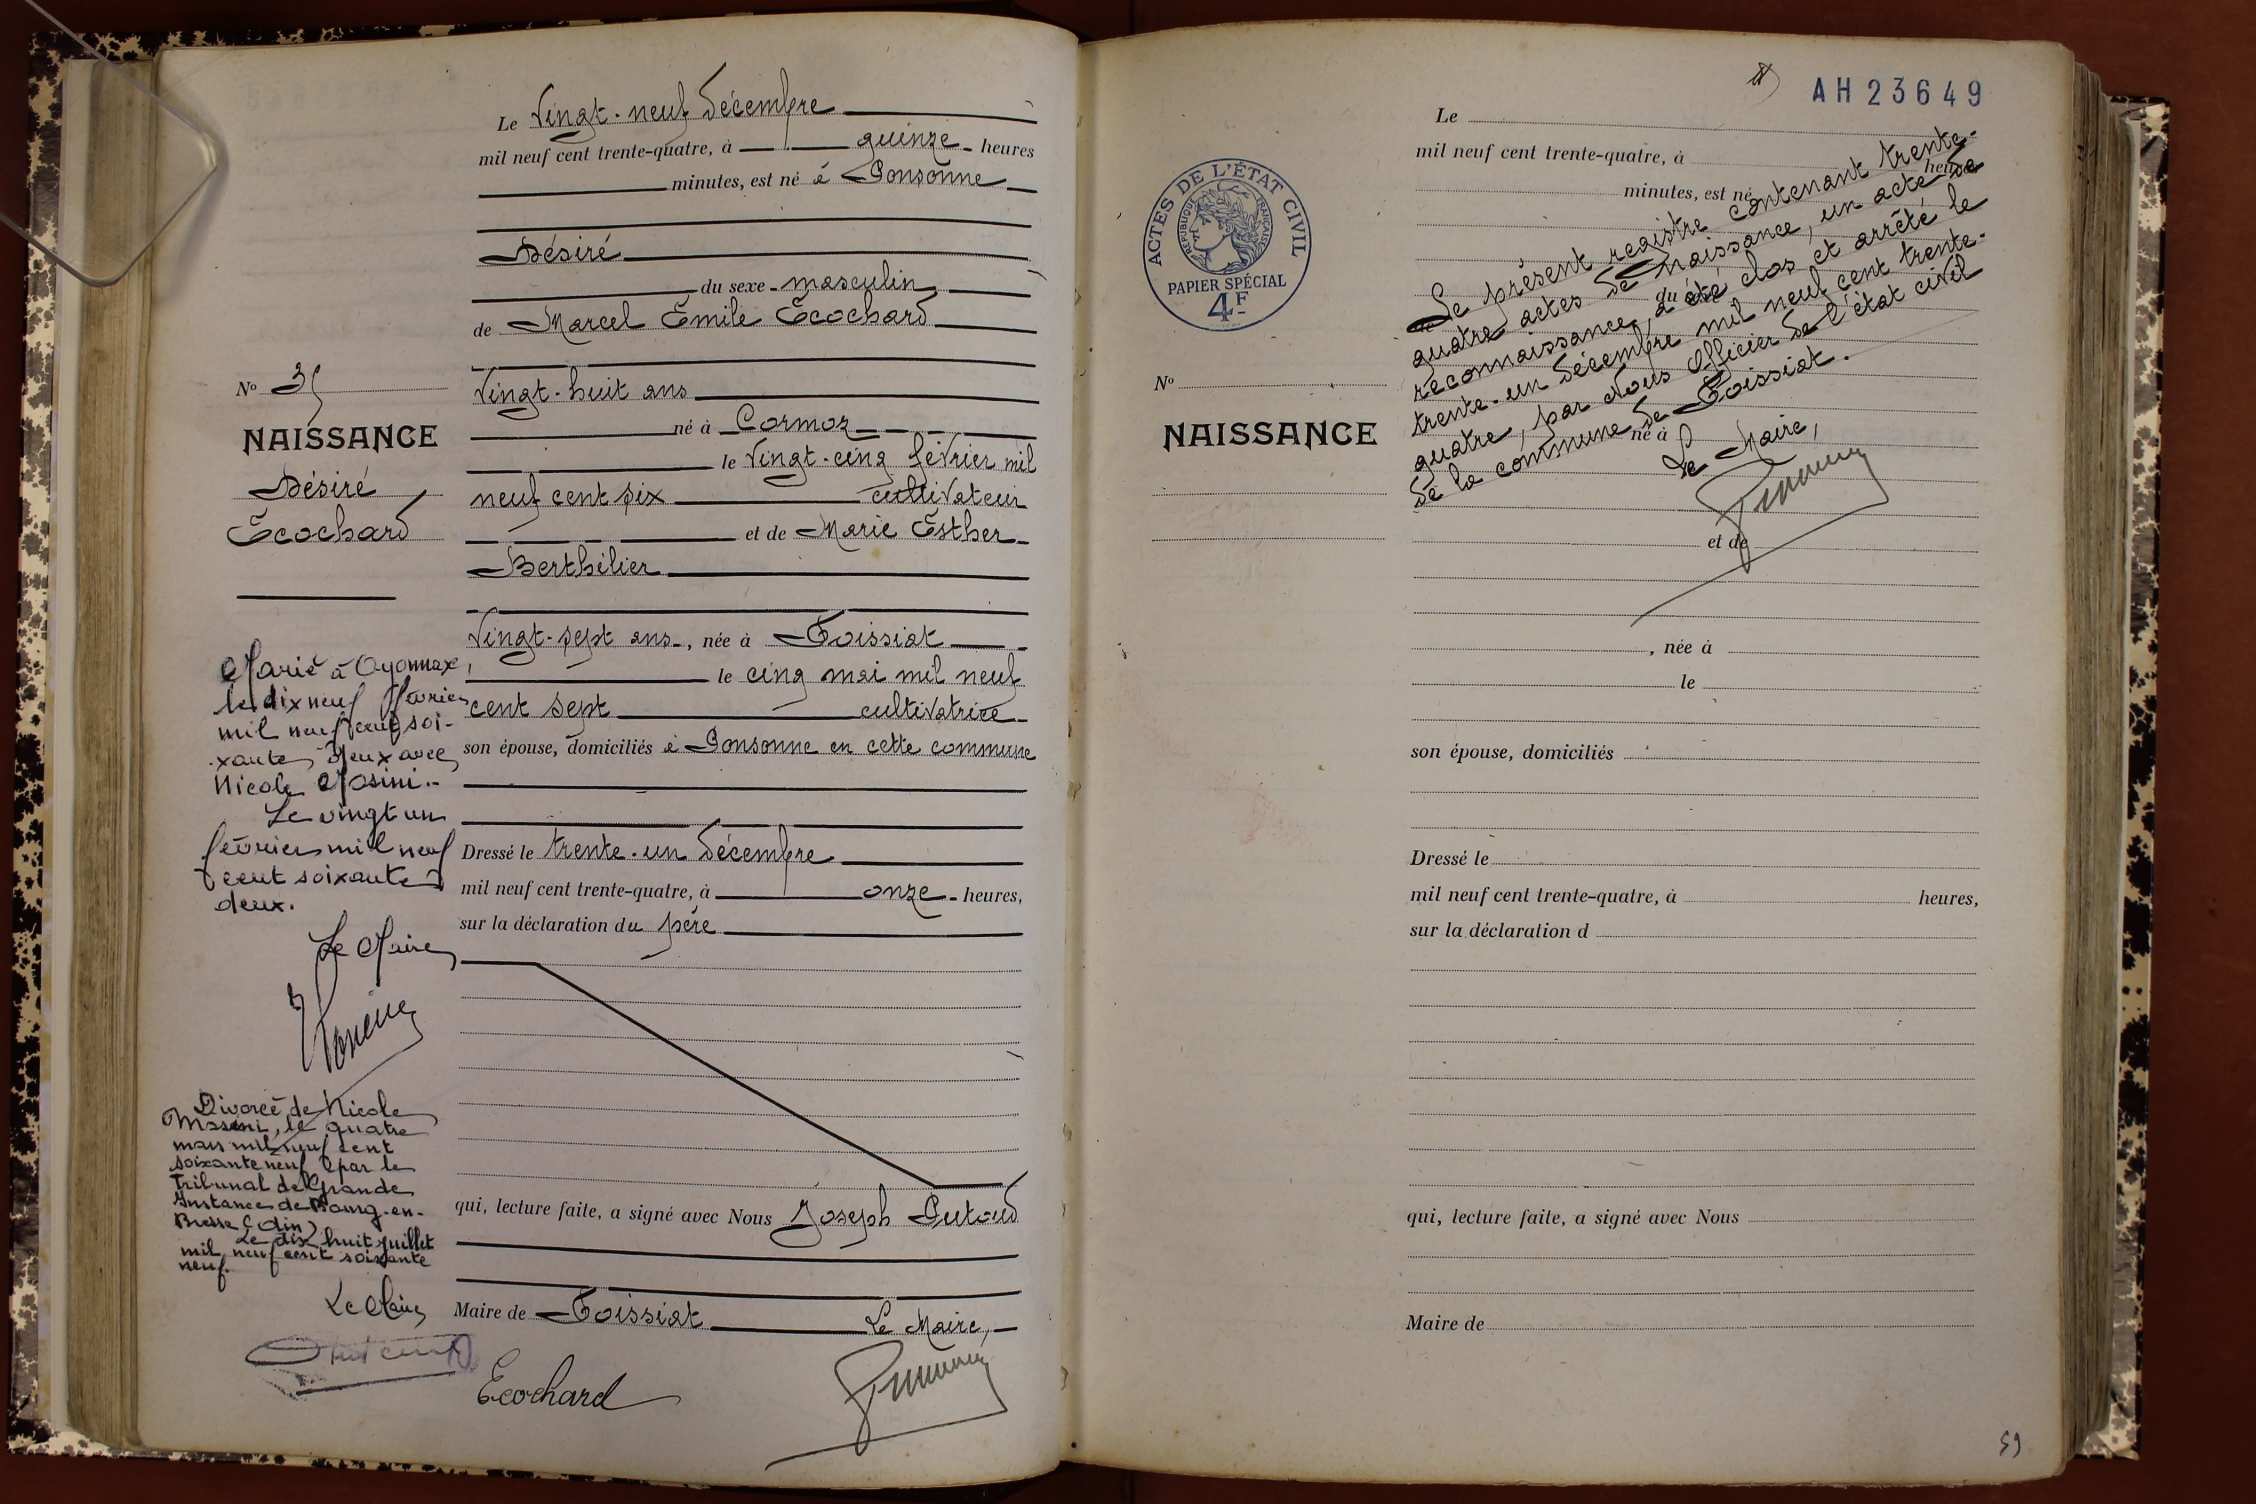 Le Vingt-neuf Décembre
mil neuf cent trente-quatre, à quinze heures
minutes, est né à Sonsonne
Désiré
du sexe masculin
de Marcel Emile Ecochard
Vingt-huit ans
né à Cormoz
le Vingt-cinq février mil
neuf cent six cultivateur
et de Marie Esther
Berthélier
Vingt-sept ans, née à Foissiat
le cinq mai mil neuf
cent sept cultivatrice
son épouse, domiciliés à Sonsonne en cette commune
Dressé le trente-un Décembre
mil neuf cent trente-quatre, à onze heures,
sur la déclaration du père
qui, lecture faite, a signé avec Nous Joseph
Maire de Foissiat Le Maire,
Ecochard
No 35
NAISSANCE
Désiré
Ecochard
Marié à Oyonnax,
le dix neuf février
mil neuf cent soi-
xante deux avec
Nicole Masini.-
Le vingt un
février mil neuf
cent soixante
deux.
Le Maire
Divorcé de Nicole
Masini, le quatre
mars mil neuf cent
soixante neuf par le
Tribunal de Grande
Instance de Bourg-en-
Bresse (Ain)
Le dix huit juillet
mil neuf cent soixante
neuf.
Le Maire
AH23649
ACTES DE L'ÉTAT CIVIL
RÉPUBLIQUE FRANÇAISE
PAPIER SPÉCIAL
4F
No
NAISSANCE
Le
mil neuf cent trente-quatre, à heures
minutes, est né
du sexe
de
né à
et de
, née à
le
son épouse, domiciliés
Dressé le
mil neuf cent trente-quatre, à heures,
sur la déclaration d
qui, lecture faite, a signé avec Nous
Maire de
Le présent registre contenant trente-
quatre actes de Naissance, un acte de
reconnaissance, a été clos et arrêté le
trente-un Décembre mil neuf cent trente-
quatre, par Nous Officier de l'état civil
de la commune de Foissiat.
Le Maire,
59